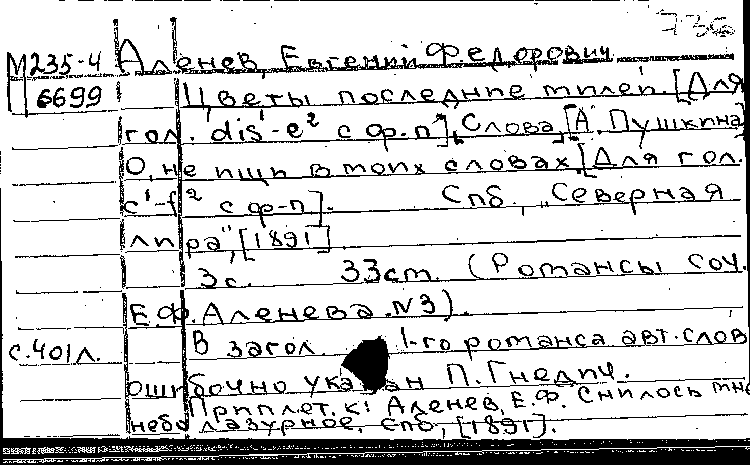 736
М235-4 Аленев, Евгений Федорович
6699 Цветы последние милей. [Для
гол. dis¹-e² с ф-п], Слова [А. Пушкина]
О, не ищи в моих словах [Для гол.
c¹-f² с ф-п]. Спб, „Северная
лира", [1891]
3 с. 33 cm (Романсы соч.
Е.Ф. Аленева. №3).
с.401л. В загол. 1-го романса авт. слов
ошибочно указан П. Гнедич.
Приплет. к: Аленев, Е.Ф. Снилось мне
небо лазурное, Спб, [1891].